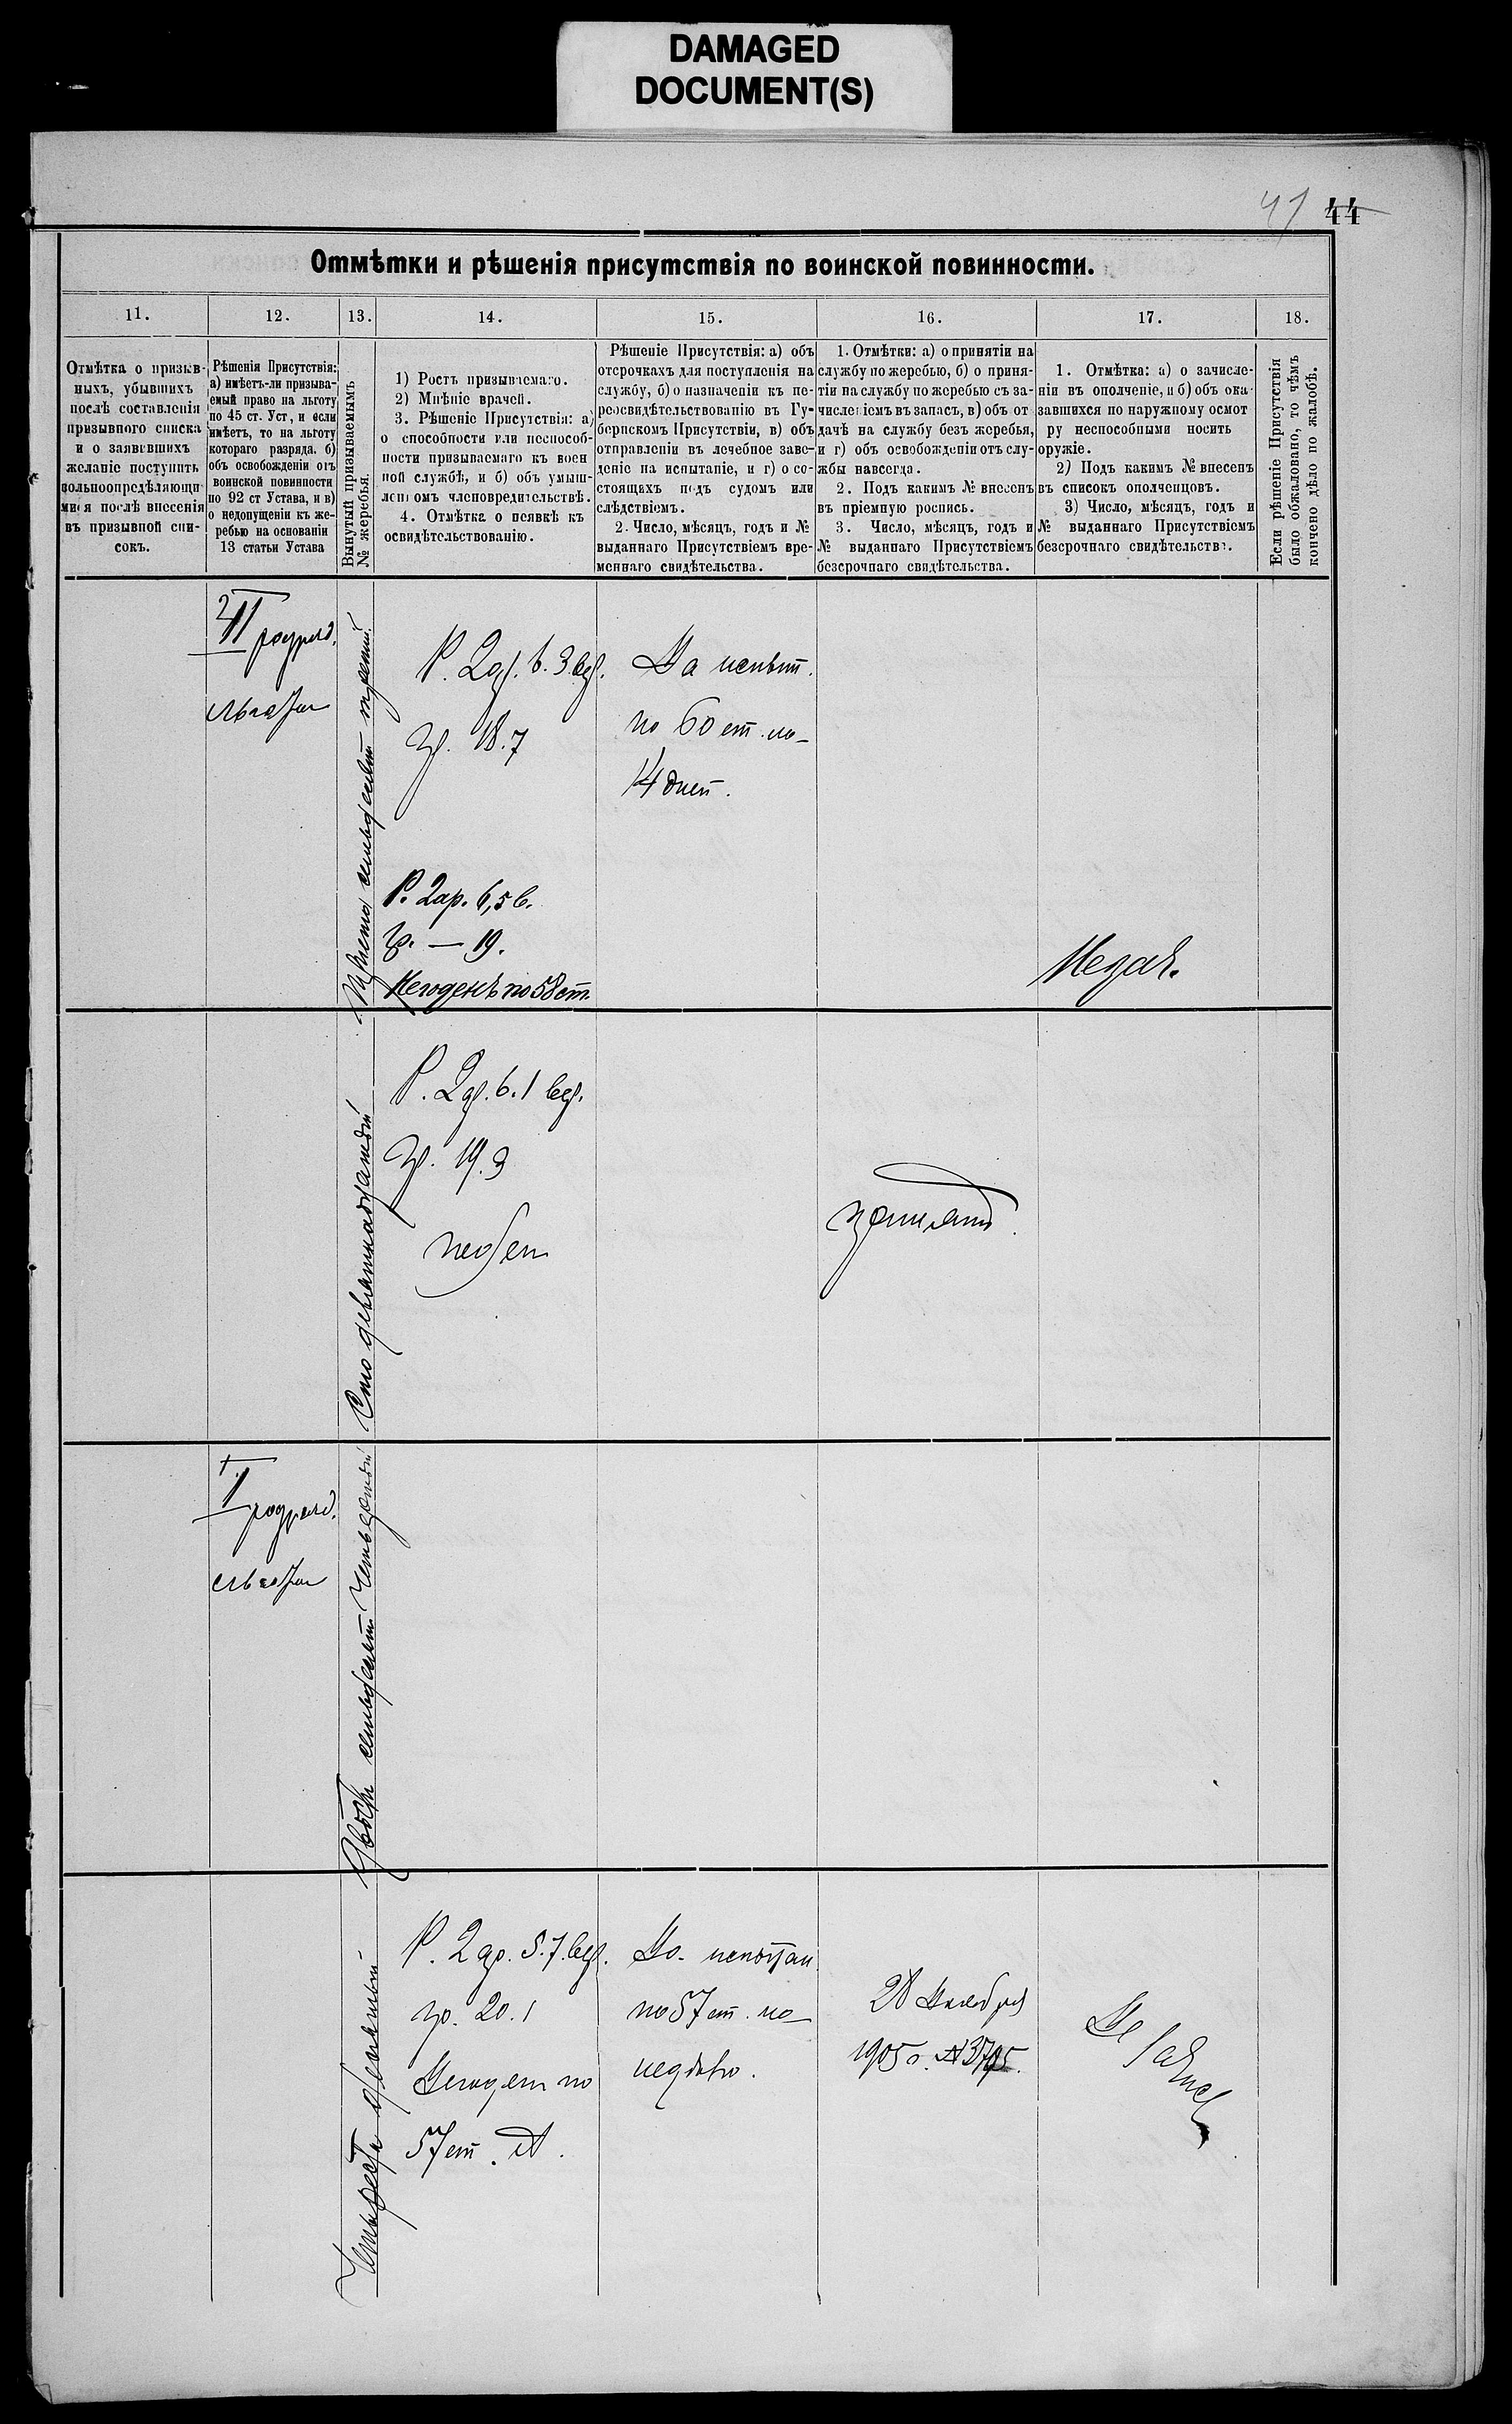 DAMAGED
DOCUMENT(S)
47 44
Отмѣтки и рѣшенія присутствія по воинской повинности.
11. 12. 13. 14. 15. 16. 17. 18.
Отмѣтка о призыв-
ныхъ, убывшихъ
послѣ составленія
призывного списка
и о заявившихъ
желаніе поступить
вольноопредѣляющи
мися послѣ внесенія
въ призывной спи-
сокъ.
Рѣшенія Присутствія:
а) имѣетъ-ли призыва-
емый право на льготу
по 45 ст. Уст, и если
имѣетъ, то на льготу
котораго разряда, б)
объ освобожденіи отъ
воинской повинности
по 92 ст Устава, и в)
о недопущеніи къ же-
ребью на основаніи
13 статьи Устава
Вынутый призываемымъ
№ жеребья.
1) Ростъ призываемаго.
2) Мнѣніе врачей.
3. Рѣшеніе Присутствія: а)
о способности или неспособ-
ности призываемаго къ воен
ной службѣ, и б) объ умыш-
леномъ членовредительствѣ.
4. Отмѣтка о неявкѣ къ
освидѣтельствованію.
Рѣшеніе Присутствія: а) объ
отсрочкахъ для поступленія на
службу, б) о назначеніи къ пе-
реосвидѣтельствованію въ Гу-
бернскомъ Присутствіи, в) объ
отправленіи въ лечебное заве-
деніе на испытаніе, и г) о со-
стоящихъ подъ судомъ или
слѣдствіемъ.
2. Число, мѣсяцъ, годъ и №
выданнаго Присутствіемъ вре-
меннаго свидѣтельства.
1. Отмѣтки: а) о принятіи на
службу по жеребью, б) о приня-
тіи на службу по жеребью съ за-
численіемъ въ запасъ, в) объ от
дачѣ на службу безъ жеребья,
и г) объ освобожденіи отъ слу-
жбы навсегда.
2. Подъ какимъ № внесенъ
въ пріемную роспись.
3. Число, мѣсяцъ, годъ и
№ выданнаго Присутствіемъ
безсрочнаго свидѣтельства.
1. Отмѣтка: а) о зачисле-
ніи въ ополченіе, и б) объ ока
завшихся по наружному осмот
ру неспособными носить
оружіе.
2) Подъ какимъ № внесенъ
въ списокъ ополченцовъ.
3) Число, мѣсяцъ, годъ и
№ выданнаго Присутствіемъ
безсрочнаго свидѣтельства.
Если рѣшеніе Присутствія
было обжаловано, то чѣмъ
кончено дѣло по жалобѣ.
II разряд.
Триста семьдесят третій
Р. 2 ар. 6. 3 вер.
гр. 18.7
На испыт.
по 60 ст. на
14 дней.
Р. 2 ар. 6,5 в.
гр. — 19.
Негоденъ по 58 ст.
Незач.
Сто девятнадцатый
Р. 2 ар. 6. 1 вер.
гр. 19.3
годен
принят.
I разряд.
Двести семьдесят четвертый
Четыреста девятый
Р. 2 ар. 5. 7. вер.
гр. 20. 1
Негоден по
57 ст. А.
На испытан.
по 57 ст. на
неделю.
28 Ноября
1905 г. № 3705.
Не зачис